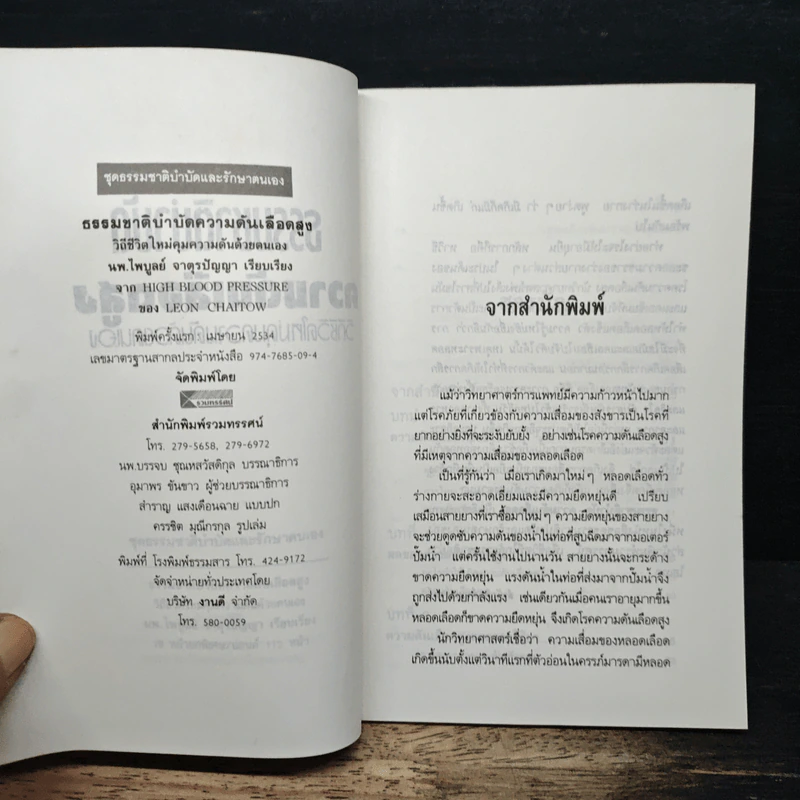 ชุดธรรมชาติบำบัดและรักษาตนเอง
ธรรมชาติบำบัดความดันเลือดสูง
วิถีชีวิตใหม่คุมความดันด้วยตนเอง
นพ.ไพบูลย์ จาตุรปัญญา เรียบเรียง
จาก HIGH BLOOD PRESSURE
ของ LEON CHAITOW
พิมพ์ครั้งแรก : เมษายน 2534
เลขมาตรฐานสากลประจำหนังสือ 974-7685-09-4
จัดพิมพ์โดย
รวมทรรศน์
สำนักพิมพ์รวมทรรศน์
โทร. 279-5658, 279-6972
นพ.บรรจบ ชุณหสวัสดิกุล บรรณาธิการ
อุมาพร ขันขาว ผู้ช่วยบรรณาธิการ
สำราญ แสงเดือนฉาย แบบปก
ครรชิต มุณีกรกุล รูปเล่ม
พิมพ์ที่ โรงพิมพ์ธรรมสาร โทร. 424-9172
จัดจำหน่ายทั่วประเทศโดย
บริษัท งานดี จำกัด
โทร. 580-0059
จากสำนักพิมพ์
แม้ว่าวิทยาศาสตร์การแพทย์มีความก้าวหน้าไปมาก
แต่โรคภัยที่เกี่ยวข้องกับความเสื่อมของสังขารเป็นโรคที่
ยากอย่างยิ่งที่จะระงับยับยั้ง อย่างเช่นโรคความดันเลือดสูง
ที่มีเหตุจากความเสื่อมของหลอดเลือด
เป็นที่รู้กันว่า เมื่อเราเกิดมาใหม่ๆ หลอดเลือดทั่ว
ร่างกายจะสะอาดเอี่ยมและมีความยืดหยุ่นดี เปรียบ
เสมือนสายยางที่เราซื้อมาใหม่ๆ ความยืดหยุ่นของสายยาง
จะช่วยดูดซับความดันของน้ำในท่อที่สูบฉีดมาจากมอเตอร์
ปั๊มน้ำ แต่ครั้นใช้งานไปนานวัน สายยางนั้นจะกระด้าง
ขาดความยืดหยุ่น แรงดันน้ำในท่อที่ส่งมาจากปั๊มน้ำจึง
ถูกส่งไปด้วยกำลังแรง เช่นเดียวกันเมื่อคนเราอายุมากขึ้น
หลอดเลือดก็ขาดความยืดหยุ่น จึงเกิดโรคความดันเลือดสูง
นักวิทยาศาสตร์เชื่อว่า ความเสื่อมของหลอดเลือด
เกิดขึ้นนับตั้งแต่วินาทีแรกที่ตัวอ่อนในครรภ์มารดามีหลอด